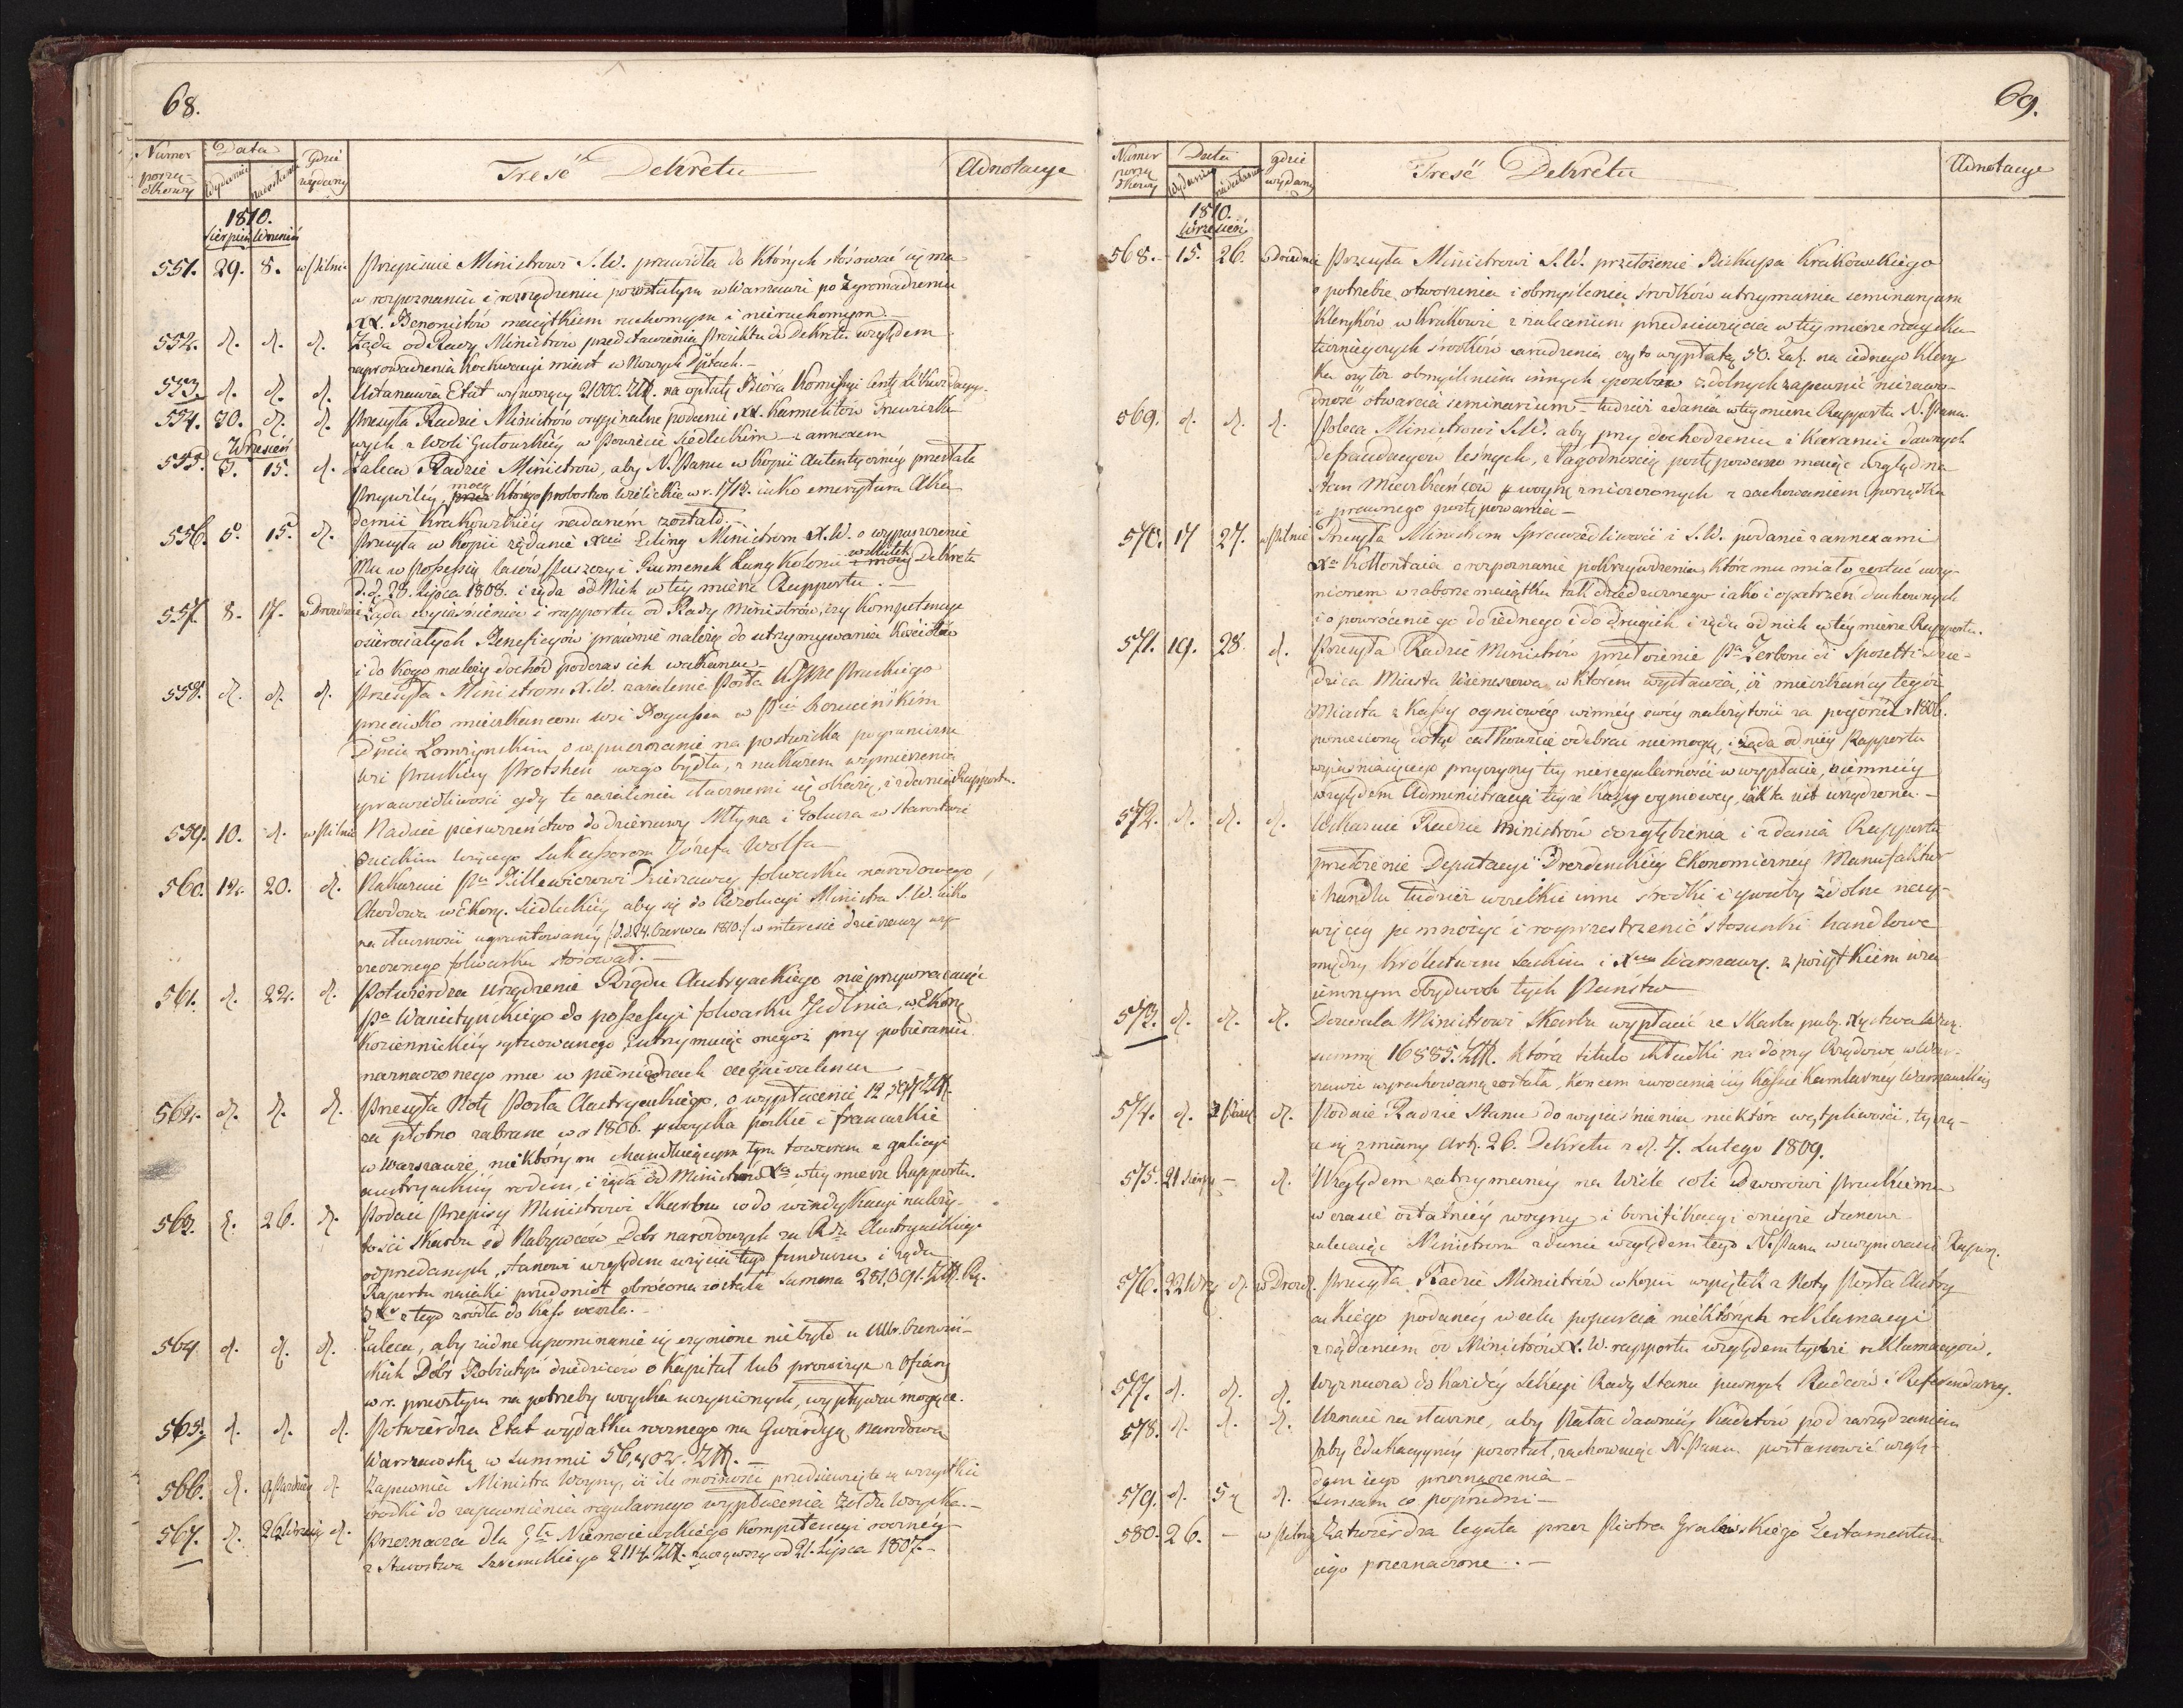 68.
Numer porządkowy Data wydania nadesłania gdzie wydany Treść Dekretu Adnotacye
1810.
Sierpień Wrzesień
551. 29. 8. w Pilnic Przepisuie Ministrowi S.W. prawidła do których stosować się ma
w rozpoznaniu i rozrządzeniu pozostałym w Warszawie po Zgromadzeniu
XX. Benonistów maiątkiem ruchomym i nieruchomym.—
552. d. d. d. Żąda od Rady Ministrow przedstawienia Proiektu do Dekretu względem
zaprowadzenia miast w Nowych Dptach.—
553. d. d. d. Ustanawia Etat wynoszący 21000. Złt. na opłatę Bióra Komissyi Centr. Likwidacyi.
554. 30. d. d. Przesyła Radzie Ministrów oryginalne podanie XX. Karmelitów Trzewiczko-
wych z Woli Gułowskiéy w Powiecie Siedleckim z annexem
Wrzesień
555. 5. 15. d. Zaleca Radzie Ministrow, aby N. Panu w kopii autentyczniéy przesłała
Przywiléy, mocą którego probostwo Wielickie w r. 1713. iako emerytura Aka-
demii Krakowskiéy nadaném zostało.
556. 5. 15. d. Przesyła w kopii żądanie Xcia Ministrom X.W. o wypuszczenie
Mu w possessią lasow Puszczy i Kolonii wskutek Dekretu
d. d. 28. Lipca 1808. i żąda od Nich w téy mierze Rapportu.—
557. 8. 17. w Dreznie Żąda wyiaśnienia i rapportu od Rady Ministrów, czy kompetencye
osierociałych Beneficyów prawnie należą do utrzymywania Kościołów
i do kogo należy dochód podczas ich wakansu.—
558. d. d. d. Przesyła Ministrom X.W. zażalenie Posła Pruskiego
przeciwko mieszkańcom wsi w Pcie
Dpcie Łomżyńskim, o wpuszczanie na pastwiska pogranicznéy
wsi Pruskiéy swego bydła, z nakazem wymierzenia
sprawiedliwości gdy te zażalenia słusznemi się okażą, i zdania Rapportu.
559. 10. d. w Pilnic Nadaie pierwszeństwo do dzierżawy Młyna i w Starostwie
leżącego Sukcessorom Józefa Wolffa—
560. 12. 20. d. Nakazuie Pu Billewiczowi Dzierżawcy folwarku narodowego
Chodowa w Ekon. Siedleckiéy aby się do Rezolucyi Ministra S.W. iako
na słuszności ugruntowanéy /d. d. 24. Czerwca 1810./ w interesie dzierżawy wy-
rzeczonego folwarku stosował.—
561. d. 22. d. Potwierdza Urządzenie Rządu Austryackiego nieprzywracaiąc
Pa Wanietyńckiego do possessyi folwarku Jedlnia, w Ekon.
Kozienickiéy sytuowanego, utrzymuiąc onegoż przy pobieraniu
naznaczonego mu w pieniądzach aequivalensu
562. d. d. d. Przesyła Notę Posła Austryackiego, o wypłacenie 12,597 Złt
za płótno zabrane w r 1806. p. woyska polskie i francuskie
w Warszawie, niektórym Handluiącym tym towarem z galicyi
austryackiéy rodem, i żąda od Ministrów Xa w téy mierze Rapportu.
563. d. 26. d. Podaie Przepisy Ministrowi Skarbu co do windykacyi należy-
tości Skarbu od Nabywców Dóbr narodowych za Rdu Austryackiego
odprzedanych, stanowi względem użycia tego funduszu i żąda
Raportu na iaki przedmiot obrócona została Summa 281,091. Złt. Gr.
z tego źrodła do kass weszła.—
564 d. d. d. Zaleca, aby żadne upominanie się czynione niebyło u
skich Dóbr dziedziców o kapitał lub prowizye z Ofiary
w r. przeszłym na potrzeby woyska uczynionych, wypływać mogące.
565. d. d. d. Potwierdza Etat wydatku rocznego na Gwardyą Narodową
Warszawską w Summie 56,402. Złt.—
566. d. 9 Paźdz. d. Zapewnia Ministra Woyny, iż ile możności przedsięwzięte są wszystkie
środki do zapewnienia regularnego wypłacenia żołdu Woyska.—
567. d. 26 Wrześ. d. Przeznacza dla Gła Niemoiewskiégo kompetencyi roczney
z Starostwa Szremskiego 2114. Złt. zacząwszy od 21. Lipca 1807.—
69.
Numer porządkowy Data wydania nadesłania gdzie wydany Treść Dekretu Adnotacye
1810.
Wrzesień
568. 15. 26. w Dreznie Przesyła Ministrowi S.W. przełożenie Biskupa Krakowskiego
o potrzebie otworzenia i obmyślenia środków utrzymania seminaryum
Kleryków w Krakowie z zaleceniem przedsięwzięcia w téy mierze naysku-
tecznieyszych środków zaradzenia czy to wypłatą 50. Zł. na iednego Klery-
ka czy też obmyśleniem innych sposobow zdolnych zapewnić niezawo-
dność otwarcia seminarium— tudzież zdania w téy mierze Rapportu N. Panu.
569. d. d. d. Poleca Ministrowi S.W. aby przy dochodzeniu i karaniu dawnych
defraudacyow leśnych, z łagodnością postępowano maiąc wzgląd na
stan Mieszkańców p. woynę zniszczonych z zachowaniem porządku
i prawnego postępowania—
570. 17 27. w Pilnic Przesyła Ministrom Sprawiedliwości i S.W. podanie z annexami
Xa Kołłontaia o rozpoznanie pokrzywdzenia, które mu miało zostać uczy-
nionem w zaborze maiątku tak dziedzicznego iako i opatrzeń duchownych
i o powrócenie go do iednego i do drugich i żąda od nich w téy mierze Rapportu.
571. 19. 28. d. Przesyła Radzie Ministrów przełożenie Pa Zerboni di Sposetti dzie-
dzica Miasta Wieruszowa w ktorém wystawia, iż mieszkańcy tegoż
Miasta z Kassy ogniowéy winnéy swéy należytości za pogorzel r 1806.
poniesioną dotąd całkowicie odebrać niemogą, i żąda od niéy Rapportu
wyiaśniaiącego przyczyny téy nieregularności w wypłacie, niemniéy
względem Administracyi teyże Kassy ogniowey, iak ta iest urządzona.—
572. d. d. d. Wskazuie Radzie Ministrów do zgłębienia i zdania Rapportu
przełożenie Deputacyi Drezdeńskiéy Ekonomiczneý Manufaktur
i handlu tudzież wszelkie inne środki i sposoby zdolne nay-
więcéy pomnożyć i rozprzestrzenić stosunki handlowe
między Królestwem Saskim i Xtwem Warszawsk. z pożytkiem wza-
iemnym obydwóch tych Państw—
573. d. d. d. Dozwala Ministrowi Skarbu wypłacić ze Skarbu publ. Xięstwa Warsz.
summę 16885. Złt. która titulo składki na domy Rządowe w War-
szawie wyrachowaną została, końcem zwrocenia iéy Kassie Kamlarnéy Warszawskiéy
574. d. 2 Paźdz. d. Podaie Radzie Stanu do wyiaśnienia niektóre wątpliwości, tyczą-
ce się zmiany Art. 26. Dekretu z d. 7. Lutego 1809.
575. 21 Sierp. — d. Względem zatrzymanéy na Wiśle soli Dworowi Pruskiemu
w czasie ostatniéy woyny i bonifikacyi oneyże stanowi
zalecaiąc Ministrom zdanie względem tego N. Panu wyraźnie Rapor.
576. 22 Wrz. d. w Drezd. Przesyła Radzie Ministrów w kopii wyiątek z Noty Posła Austry-
ackiégo podanéy w celu poparcia niektórych reklamacyi
z żądaniem od Ministrów X.W. rapportu względem tychże reklamacyow.
577. d. d. d. Wyznacza do każdéy Sekcyi Rady Stanu pewnych Radców i Referendarzy.
578. d. d. d. Uznaie za słuszne, aby Pałac dawniéy Kadetów pod zarządzeniem
Izby Edukacyynéy pozostał, zachowuiąc N. Panu postanowić wzglę-
dem iego przeznaczenia—
579. d. 5 d. Tensam co poprzedni—
580. 26. — w Pilnic Zatwierdza legata przez Piotra Gralewskiégo Testamentem
iego przeznaczone.—